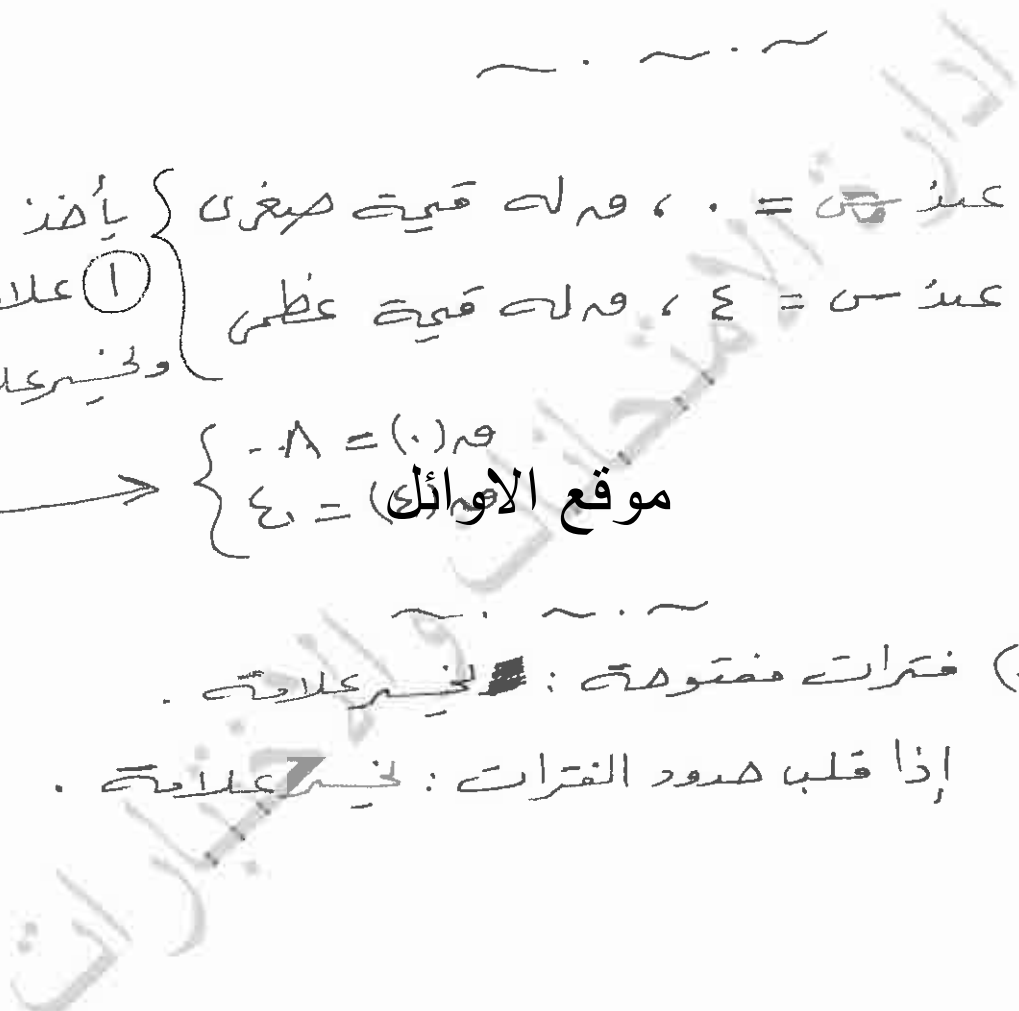 عند س = ٠ ، ق له قيمة صغرى } يأخذ
عند س = ٤ ، ق له قيمة عظمى } ① علا
ويخسر علا
ق(٠) = ٨-
ق(٤) = ٤
موقع الاوائل
) فترات مفتوحة : يخسر علامته .
إذا قلب حدود الفترات : يخسر علامة .
ادارة الامتحانات والاختبارات